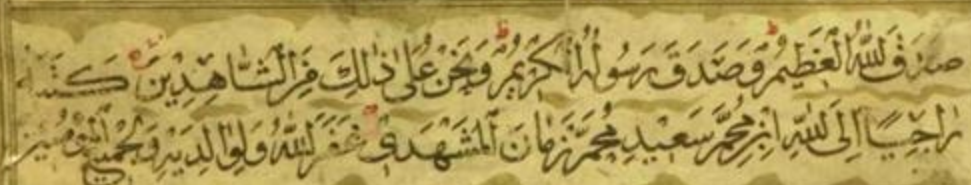 صَدَقَ اللّٰهُ الْعَظِيمُ وَصَدَقَ رَسُولُهُ الْكَرِيمُ وَنَحْنُ عَلَىٰ ذٰلِكَ مِنَ الشَّاهِدِينَ كَتَبَهُ
رَاجِيًا اِلَى اللّٰهِ ابْنِ مُحَمَّد سَعِيدِ مُحَمَّد زَمَانَ الْمَشْهَدِيُّ غَفَرَ اللّٰهُ وَلِوَالِدَيْهِ وَلِجَمِيعِ الْمُؤْمِنِينَ